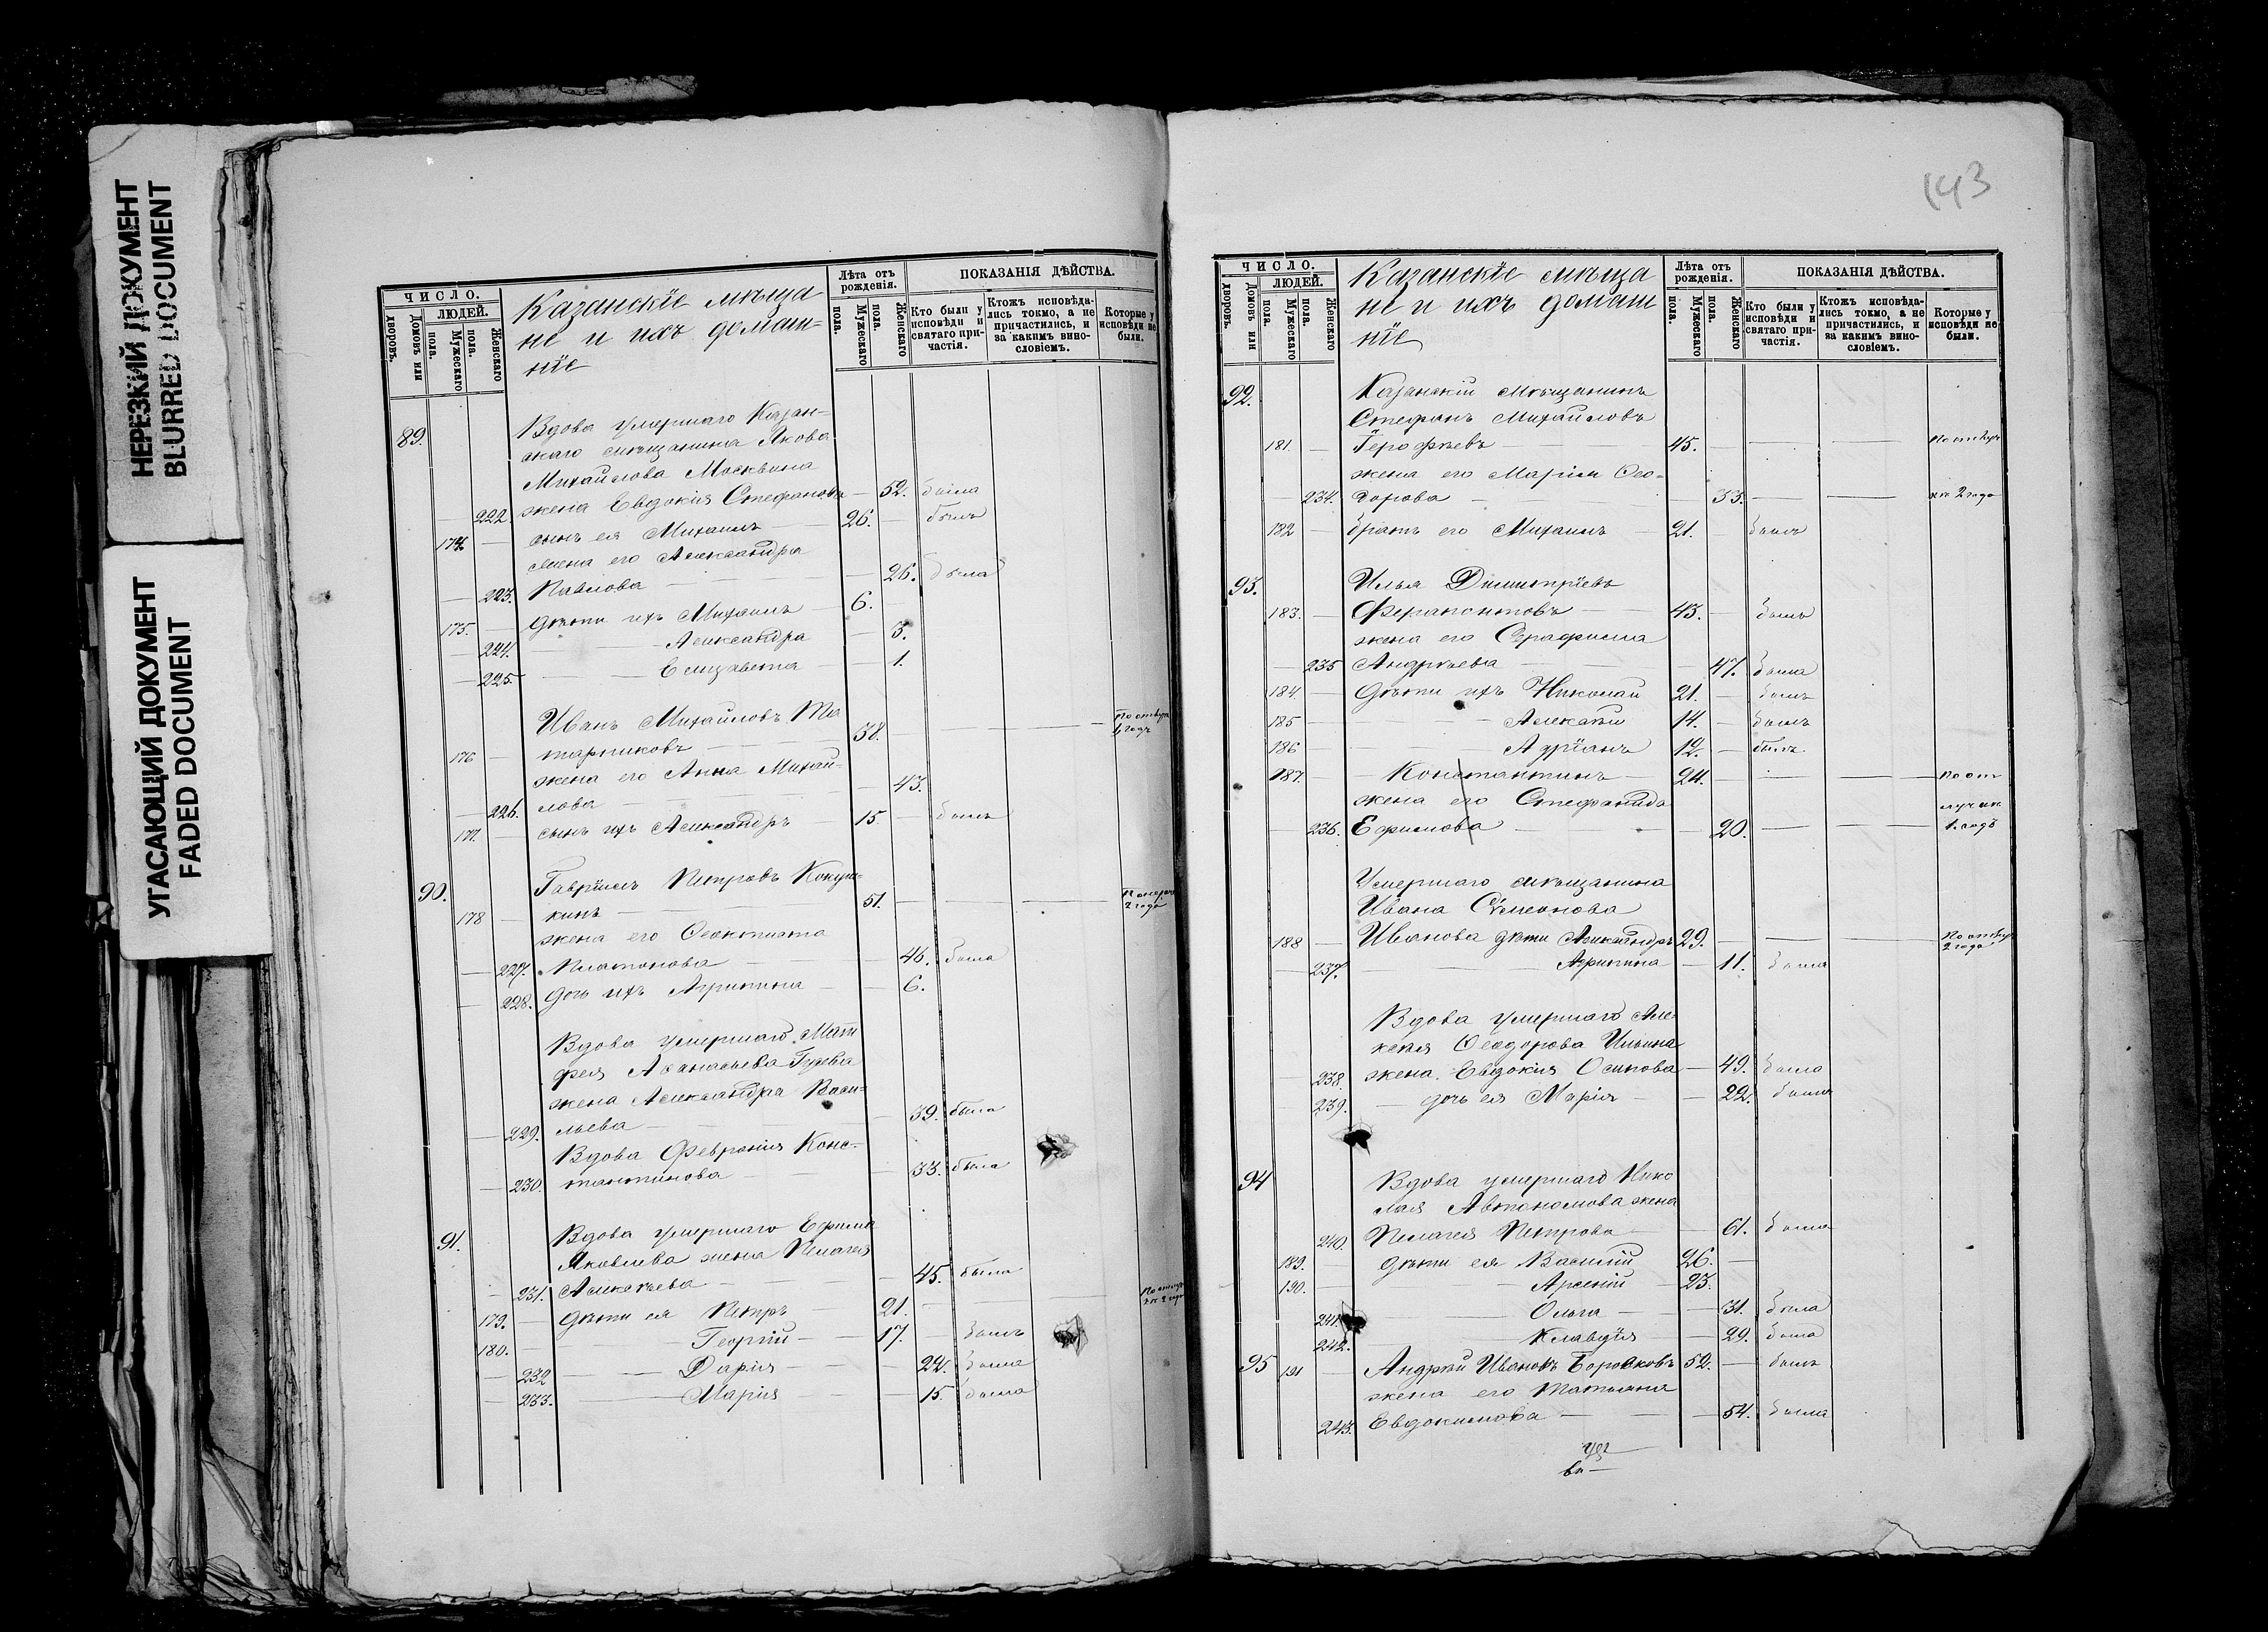 НЕРЕЗКИЙ ДОКУМЕНТ
BLURRED DOCUMENT
УГАСАЮЩИЙ ДОКУМЕНТ
FADED DOCUMENT
ЧИСЛО.
ЛЮДЕЙ.
Домовъ или дворовъ.
Мужескаго пола.
Женскаго пола.
Казанскіе мѣща
не и ихъ домаш-
ніе
Лѣта отъ рожденія.
Мужескаго пола.
Женскаго пола.
ПОКАЗАНІЯ ДѢЙСТВА.
Кто были у исповѣди и святаго причастія.
Ктожъ исповѣдались токмо, а не причастились, и за какимъ винословіемъ.
Которые у исповѣди не были.
89. Вдова умершаго Казан-
скаго мѣщанина Якова
Михайлова Москвина
222. жена Евдокія Стефанова — 52. была
174. сынъ ея Михаилъ 26. — былъ
жена его Александра
223. Павлова — 26. была
175. дѣти ихъ Михаилъ — 6.
224. Александра — 3.
225. Елизавета — 1.
Иванъ Михайловъ Та
176 тарниковъ 38. — по отлуч
жена его Анна Михай-
226. лова — 43.
177. сынъ ихъ Александръ — 15. — былъ
90. Гавріилъ Петровъ Кокуш-
178 кинъ 51. — 2 года
жена его Ѳеоктиста
227. Платонова — 46. была
228. дочь ихъ Агрипина — 6.
Вдова умершаго Мат
фея Аѳанасьева Гусева
жена Александра Васи-
229. льева — 39. была
Вдова Феврония Конс-
230. тантинова — 33. была
91. Вдова умершаго Ефима
Яковлева жена Пелагея
231. Алексѣева — 45. была
179. дѣти ея Петръ 21. — по отлуч
180. Георгій — 17. — былъ
232 Дарія — 22. была
233. Марія — 15. была
143
ЧИСЛО.
ЛЮДЕЙ.
Домовъ или дворовъ.
Мужескаго пола.
Женскаго пола.
Казанскіе мѣща
не и ихъ домаш
ніе
Лѣта отъ рожденія.
Мужескаго пола.
Женскаго пола.
ПОКАЗАНІЯ ДѢЙСТВА.
Кто были у исповѣди и святаго причастія.
Ктожъ исповѣдались токмо, а не причастились, и за какимъ винословіемъ.
Которые у исповѣди не были.
92. Казанскій мѣщанинъ
Стефанъ Михайловъ
181. Герофѣевъ 45. — по отлуч
жена его Марія Ѳео-
234. дорова — 33. — 2 года
182 братъ его Михаилъ — 21. былъ
93. Илья Димитріевъ
183. Ферапонтовъ 43. — былъ
жена его Серафима
235 Андреева — 47. была
184. дѣти ихъ Николай 21. — былъ
185 Алексѣй 14. — былъ
186 Адріанъ 12. — былъ
187. Константинъ 24. — по от
жена его Стефанида лучк
236. Ефимова — 20. — 1 годъ
Умершаго мѣщанина
Ивана Сѵмеонова
188 Иванова дѣти Александръ 29. — по отлуч 2 года
237. Агрипина — 11. была
Вдова умершаго Але-
ксѣя Ѳеодорова Ильина
238. жена Евдокія Осипова — 49. была
239. дочь ея Марія — 22. была
94 Вдова умершаго Нико
лая Автономова жена
240. Пелагея Петрова — 61. была
189. дѣти ея Василій 26. —
190. Арсеній 23.
241. Ольга — 31. была
242. Клавдія — 29. была
95 191 Андрей Ивановъ Боровковъ 52. — былъ
жена его Татьяна
243. Евдокимова — 54. была